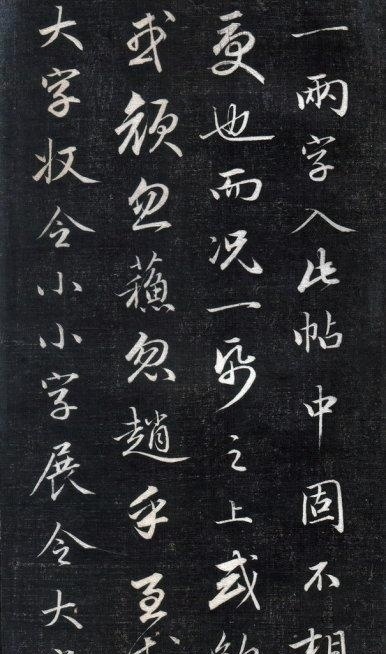 一兩字入此帖中固不相
更也而況一紙之上或
或顏忽蘇忽趙乎至
大字收令小小字展令大